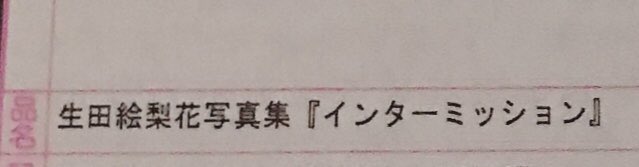 品名
生田絵梨花写真集『インターミッション』